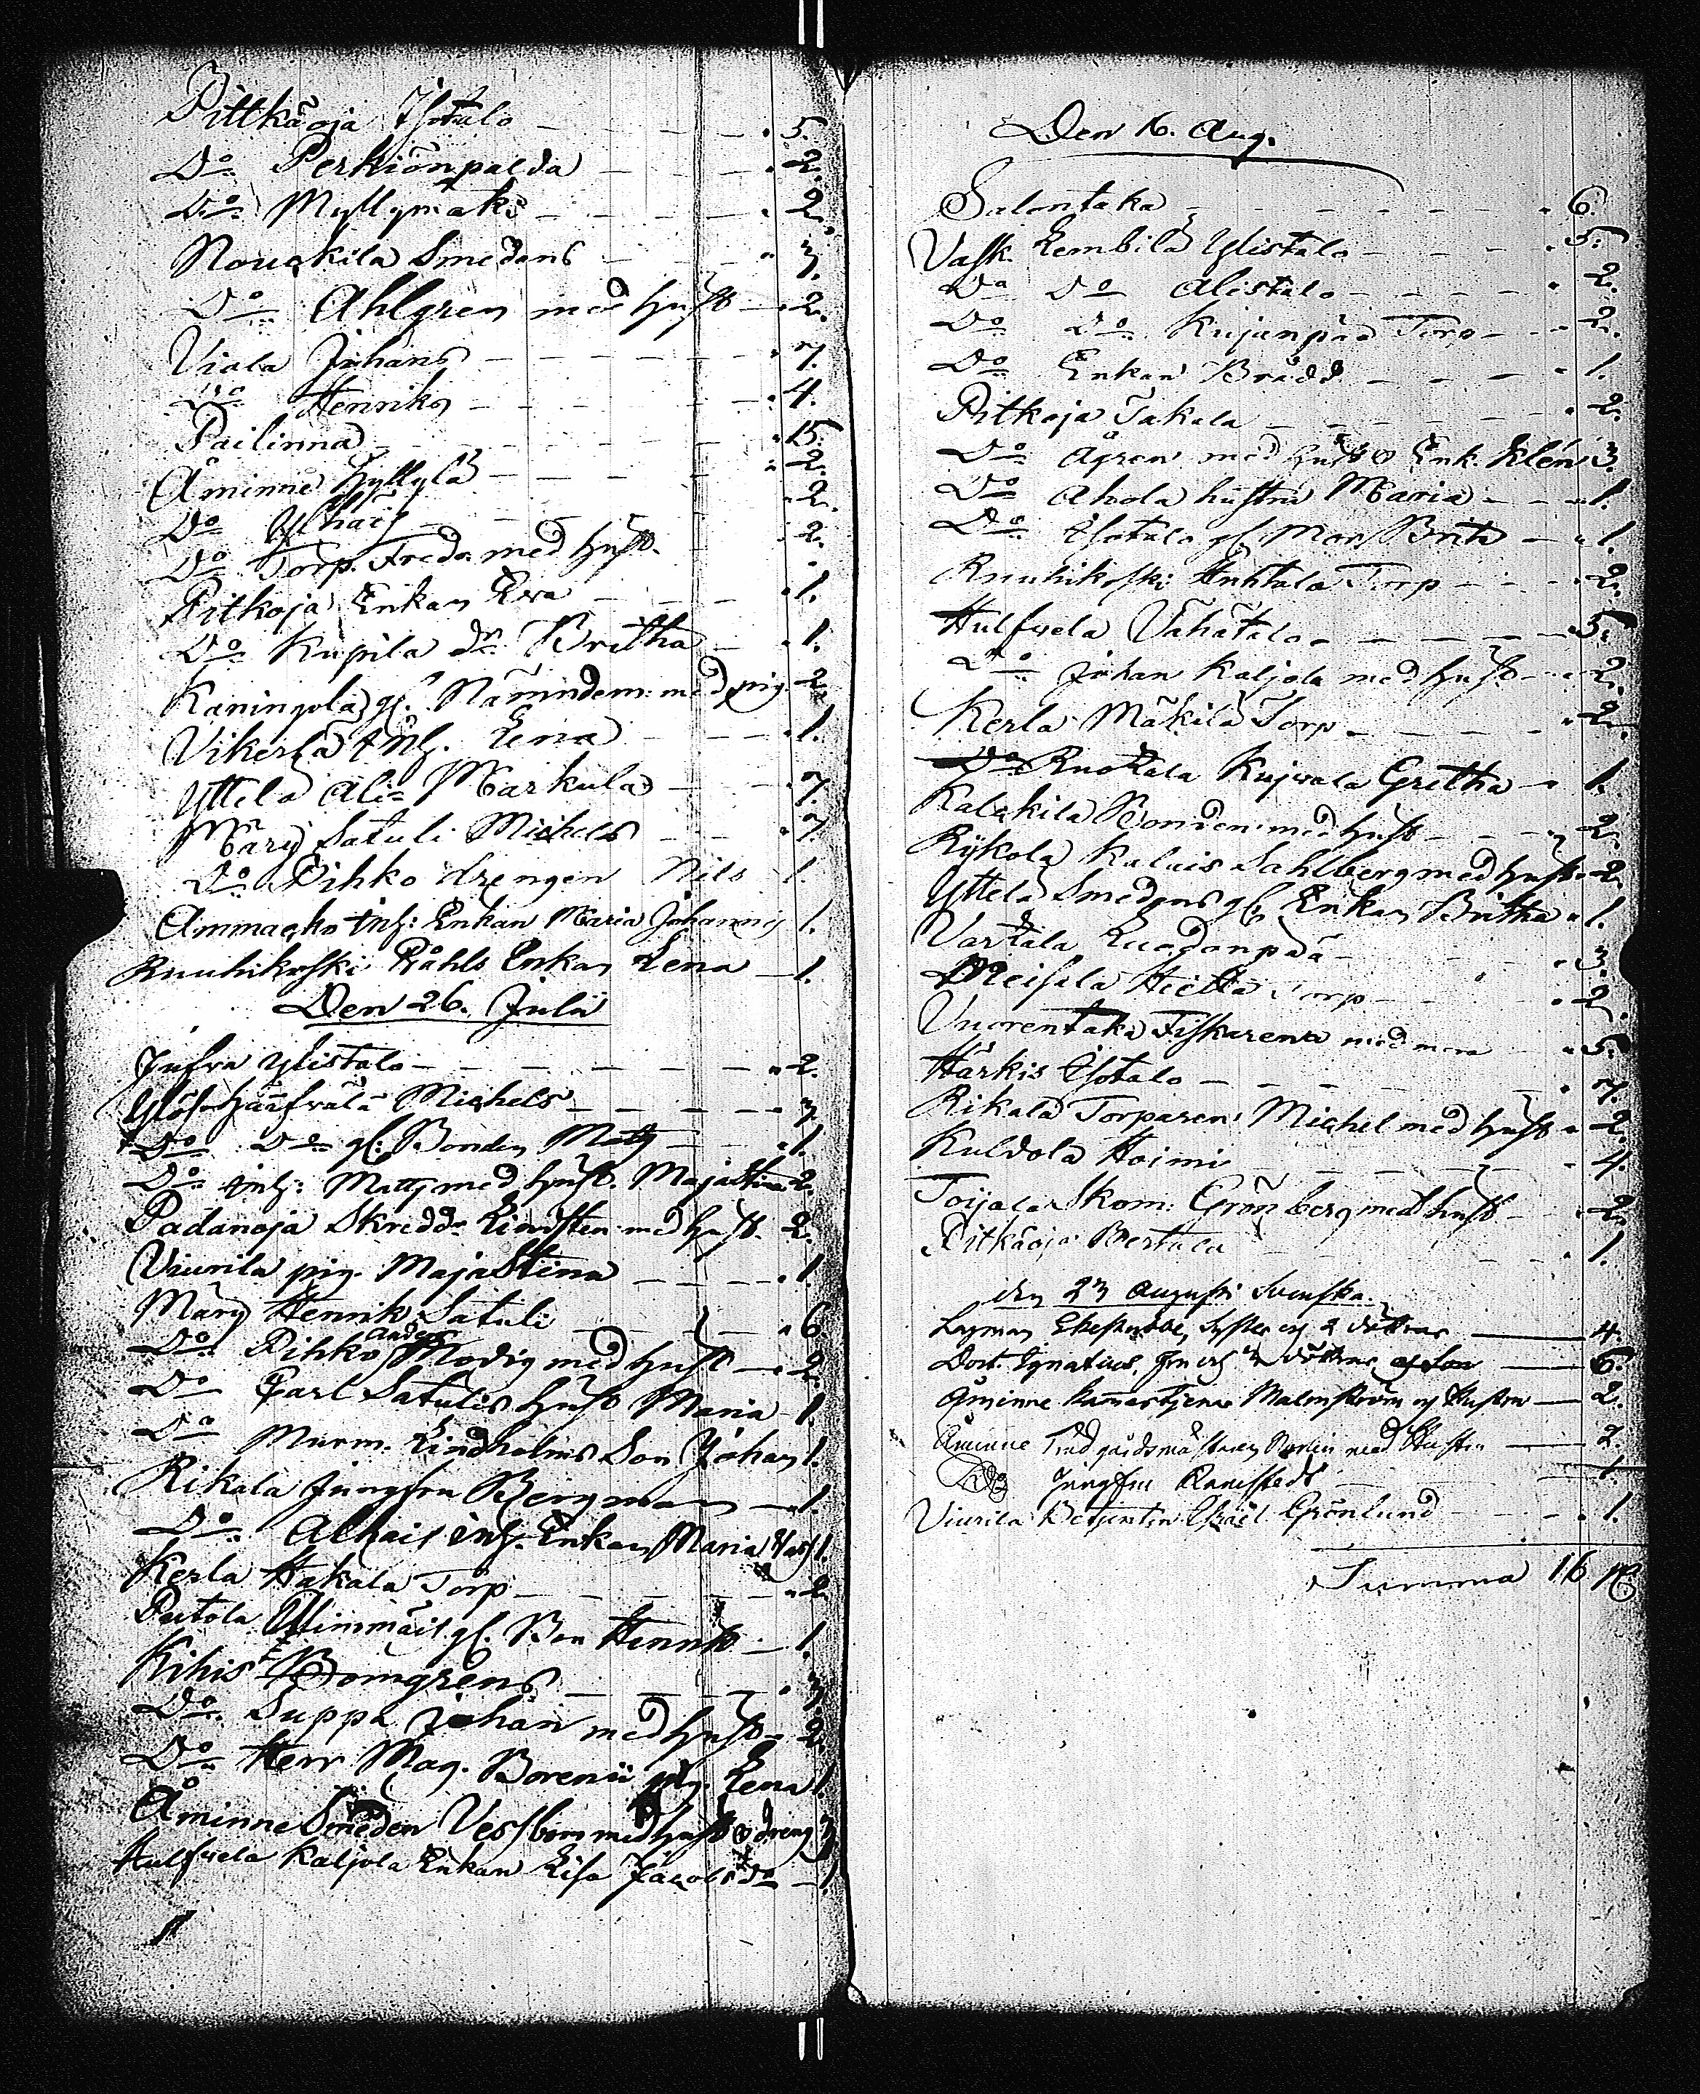 Pittkäoja Isotalo - - - - 5.
Do Perkiönpalda - - - 2.
Do Myllymäki - - - - 2.
Nouskila Smedens - - - 3.
Do Ahlgren med hust. - 2.
Viala Johans - - - - 7.
Do Henriks - - - - 4.
Pailinna - - - - 15.
Åminne Hyllylä - - - 2.
Do Ylhais - - - - 2.
Do Torp. Fredr. med hust. - 2.
Pitkoja Enkan Eva - - - 1.
Do Kupila dr. Britha - 1.
Kaningola gl. Nämndem: med pig. 2.
Vikerlä inh. Lena - - 1.
Yttelä Ali= Markula - - 7.
Märy Satuli Michels - - 7.
Do Pihko drengen Nils - 1.
Ammasko inh: Enkan Maria Johansd 1.
Ruuhikoski Påhls Enkan Lena - 1.
Den 26. Julii
Jufra Ylistalo - - - - - 2.
Ylös= Häufvälä Michels - - - 3.
Do Do gl: Bonden Matts - 1.
Do inh: Matts med hust. Maja Stina 2.
Padanoja Skredd. Lindsten med hust. 2.
Viurila pig. Maja Stina - - - 1.
Märy Henrik Satuli - - 6.
Do Pihko Anders Modig med hust - 2.
Do Carl Satulis hust Maria - 1.
Do Murm. Lindholms Son Johan 1.
Rikala Jungfru Bergman - 1.
Do Alhais inh. Enkan Maria 1.
Kerla Hakala Torp - - - - 2.
Putola gl. Bon Henrik - 1.
Kihis Blomgrens - - - 3.
Do Suppa Johan med hust - 2.
Do Herr Mag. Borenii pig. Lena 1.
Åminne Smeden med hust & dreng 3.
Hulfvela Kaljola Enkan Lisa Jacobsdr - 1.
Den 16. Aug.
Salontaka - - - - - 6.
Vask. Lembilä Ylistalo - - - 5.
Do Do Alistalo - - - - 2.
Do Do Kujanpää Torp - - 2.
Do Enkan Brådd - - - - 1.
Pitkoja Takala - - - - 2.
Do Ågren med hust & Enk. Klén 3.
Do Ahola hustru Maria - - 1.
Do Isotalo gl. Mor Brita - 1.
Ruuhikoski Anttala Torp - - - 2.
Hulfvela Vähätalo - - - - 5.
Do Johan Kaljola med hust - 2.
Kerla Mäkilä Torp - - - - 2.
Do Ruotala Kujvala Gretha - 1.
Kalakila Bonden med hust - - - 2.
Rykola Kaluis Sahlberg med hust 2.
Yttelä Smedens gl. Enkan Britha 1.
Vartala Luodonpää - - - - 3.
Meisala Hietta Torp - - - 2.
Vuorentaka Fiskarens med mera 5.
Härkis Isotalo - - - - - 7.
Rikala Torparen Michel med hust - 2.
Kuldola Hoimi - - - - 4.
Toijala Skom: Grönberg med hust - 2.
Pitkäoja Bertula - - - - 1.
den 23 Augusti Svenska.
Lagman Ehrstedt, Syster och 2 döttrar - 4.
Doct. Ignatius, fru och döttrar - 6.
Åminne Kammartjenar Malmström och Hustru - 2.
Åminne Trädgårdsmästaren Norlin med Hustru - 2.
Do Jungfru - - 1.
Viurila Betjenten Israël Grönlund - - - 1.
Summa 16